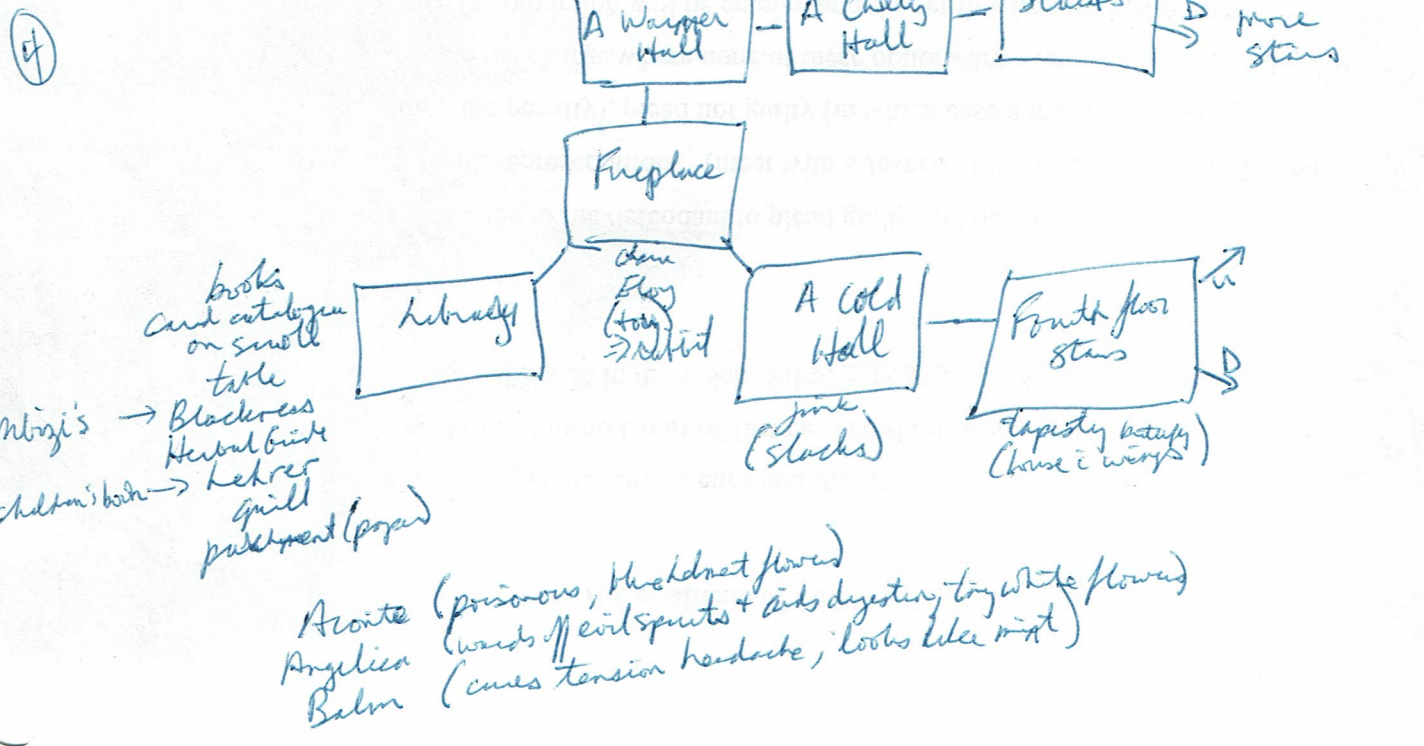 4
A Warmer
Hall
A Chilly
Hall
D
more
stairs
Fireplace
chair
(toy)
⇒ rabbit
Library
books
card catalogue
on scroll
table
→ Blackness
Herbal Guide
children's book → Lehrer
quill
parchment (prayer)
A Cold
Hall
junk
(slacks)
Fourth floor
stairs
u
D
tapestry
(house c wings)
Aconite (poisonous, flowers)
Angelica (wards off evil spirits + aids digestion, tiny white flowers)
Balm (cures tension headache, looks like mint)